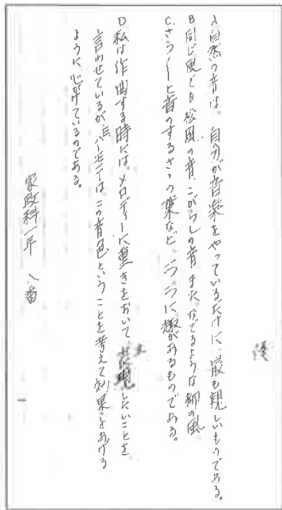 A 自然の音は、自分が音楽をやっているだけに、最も親しいものである。
B 同じ風でも松風の音、こがらしの音、またなでるような柳の風
C. さら〱と音のするささの葉など 一つ一つに趣があるものである。
D 私は作曲する時にはメロディーに重きをおいて 表現したいことを
言わせているが、ハーモニーはこの音色ということを考えて効果をあげる
ように心掛けているのである。
家政科一年 八番
優